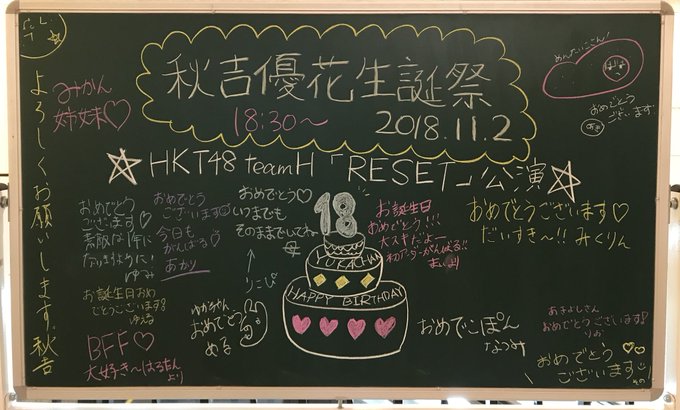 秋吉優花生誕祭
18:30〜 2018.11.2
☆HKT48 teamH「RESET」公演☆
よろしくお願いします。秋吉
みかん
姉妹♡
めんたいこさん!
おめでとう
ございます
おめでとう
ございます♡
素敵な1年に
なりますように!
ゆみ
おめでとう
ございます
今日も
がんばろう♡
あかり
おめでとう♡
いつまでも
そのままでいてね
母
りこぴ
18
YUKACHAN
HAPPY BIRTHDAY
お誕生日
おめでとう!!!
大スキだよー
がんばる!!
まいより
おめでとうございます♡
だいすき〜!! みくりん
お誕生日おめ
でとうございます
BFF♡
大好き〜はるたん
より
ゆかちゃん
おめでとう
める
おめでこぽん
なつみ
あきよしさん
おめでとうございます!
りの
おめでとう
ございます